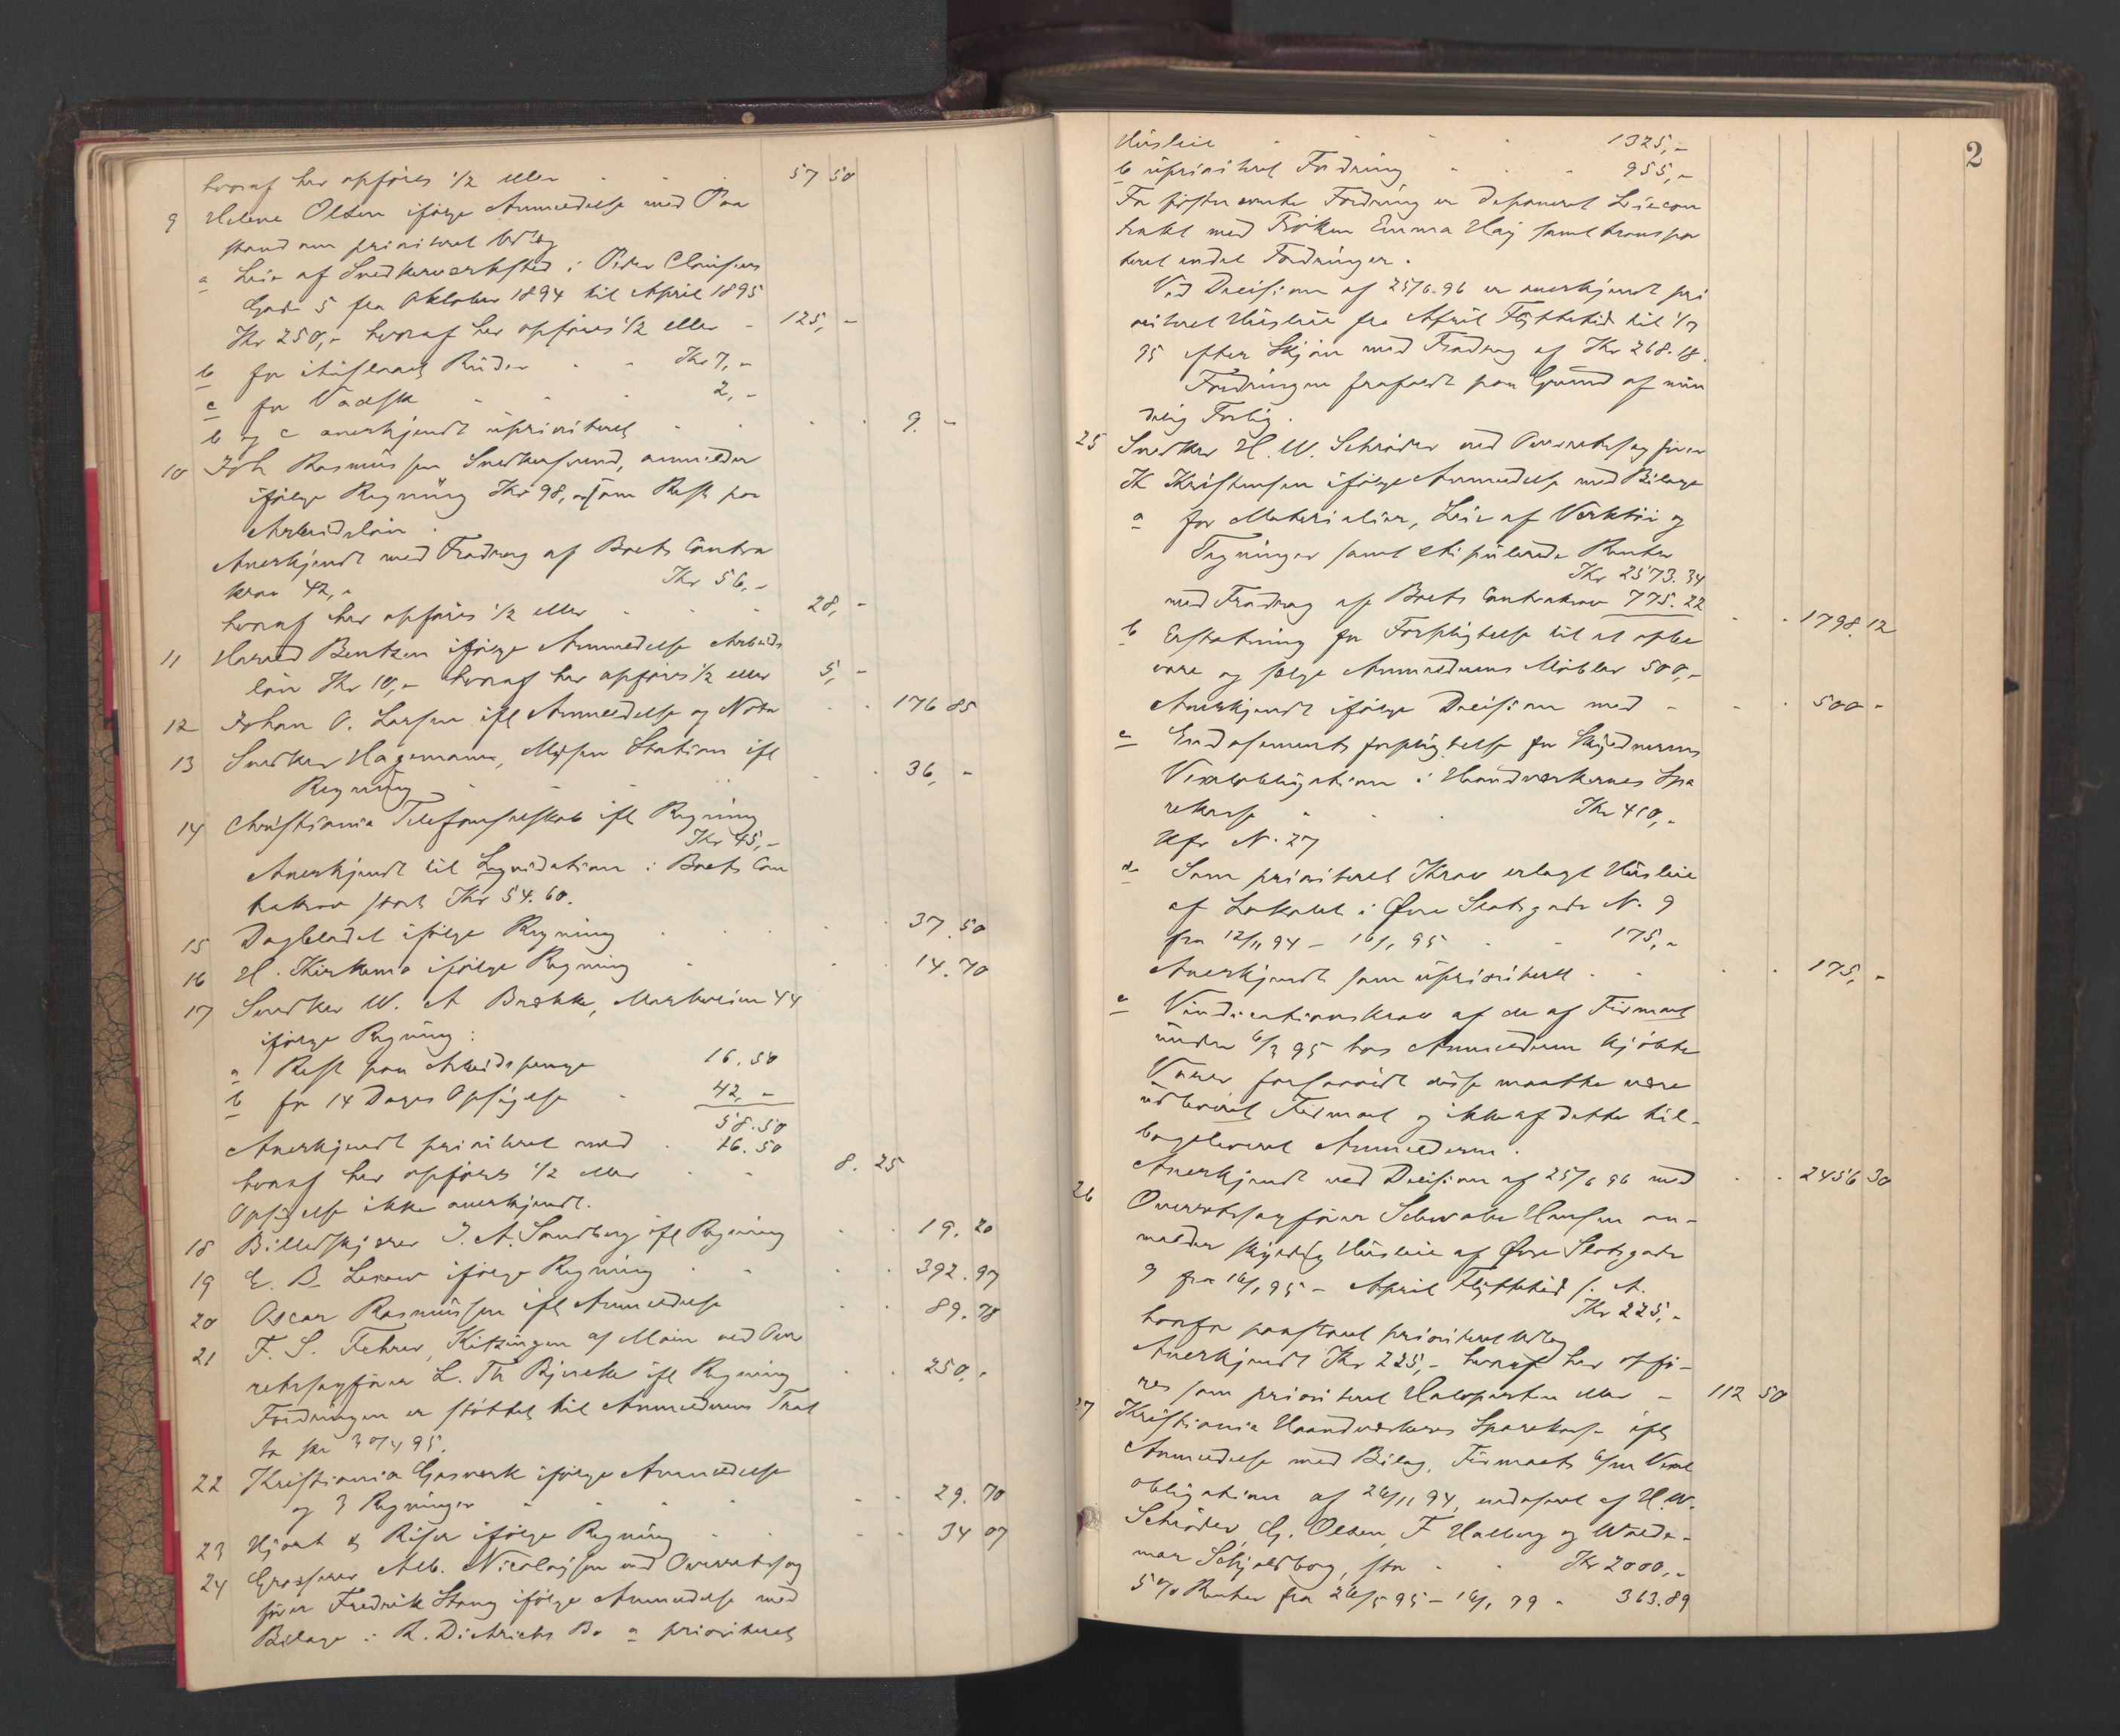 hvoraf her opføres 1/2 eller . . . 57 50
9 Helene Olsen ifølge Anmeldelse med Paa
stand om prioriteret Udlæg
a Leie af Snedkerværksted i Peder Claüsens
Gade 5 fra Oktober 1894 til April 1895
Kr 250,- hvoraf her opføres 1/2 eller - 125,-
b for itüslaaet Rüder . . Kr 7,-
c for Vadsk . . . 2,-
b og c anerkjendt üprioriteret . . . . 9 -
10 Joh Rasmüssen Snedkersvend, anmelder
ifølge Regning Kr 98,- som Rest paa
Arbeidsløn .
Anerkjendt med Fradrag af Boets Contra
krav 42,- Kr 56,-
hvoraf her opføres 1/2 eller . . . 28,-
11 Harald Bentzen ifølge Anmeldelse Arbeids
løn Kr 10,- hvoraf her opføres 1/2 eller 5,-
12 Johan O. Larsen ifl Anmeldelse og Nota . . 176 85
13 Snedker Hagemann, Mysen Station ifl
Regning - - - . . 36,-
14 Christiania Telefonselskab ifl Regning
Kr 45,-
Anerkjendt til Liqvidation i Boets Con
trakrav stort Kr 54.60.
15 Dagbladet ifølge Regning . . . . . 37.50
16 H. Kirkemo ifølge Regning . . . 14.70
17 Snedker W. A Brække, Markveien 44
ifølge Regning :
a Rest paa Arbeidspenge 16.50
b for 14 Dages Opsigelse . 42,-
58.50
Anerkjendt prioriteret med . 16.50
hvoraf her opføres 1/2 eller . . 8.25
Opsigelse ikke anerkjendt.
18 Billedskjærer J. A. Sandberg ifl Regning . . 19.20
19 E. B. Lexow ifølge Regning . . . . 392.97
20 Oscar Rasmüssen ifl Anmeldelse . . 89.78
21 F. S. Fehrer, Kitzingen a/ Main ved Over
retssagfører L. Th Bjercke ifl Regning . . 250,-
Fordringen er støttet til Anmelderens Trat
ta pr 30/4 95.
22 Kristiania Gasværk ifølge Anmeldelse
og 3 Regninger - . . . - - 29.70
23 Hjort & Riser ifølge Regning . . - - 34 07
24 Grosserer Alb. Nicolaysen ved Overretssag
fører Fredrik Stang ifølge Anmeldelse med
Bilage i R. Dietrichs Bo a prioriteret
2
Hüsleie . . . 1325,-
b üprioriteret Fordring . . . 955,-
For sidstnævnte Fordring er deponeret Leiecon
trakt med Frøken Emma Høy samt transpor
teret endel Fordringer.
Ved Decision af 25/6.96 er anerkjendt pri
oriteret Hüsleie fra April Flyttetid til 1/7
95 efter Skjøn med Fradrag af Kr 268.18.
Fordringen frafaldt paa Grund af min
delig Forlig.
25 Snedker H. W. Schrøder ved Overretssagfører
K Kristensen ifølge Anmeldelse med Bilage
a for Materialier, Leie af Værktøi og
Tegninger samt stipülerede Renter
Kr 2573.34
med Fradrag af Boets Contrakrav 775.22 . . 1798.12
b Erstatning for Forpligtelse til at opbe
vare og sælge Anmelderens Møbler 500,-
Anerkjendt ifølge Decision med - - . 500 -
c Endosements forpligtelse for Skyldnerens
Vexelobligation i Haandværkernes Spa
rekasse . . . Kr 410,-
Kfr N. 27
d Som prioriteret Krav erlagt Hüsleie
af Lokalet i Øvre Slotsgade N. 9
fra 12/11 94 - 16/1 95 . - 175,-
Anerkjendt som üprioriteret . . . . 175,-
e Vindicationskrav af de af Firmaet
ünder 6/3 95 hos Anmelderen kjøbte
Varer forsaavidt disse maatte være
üdleveret Firmaet og ikke af dette til-
bageleveret Anmelderen .
Anerkjendt ved Decision af 25/6 96 med . . 2456 30
26 Overretssagfører Schwabe Hansen an-
melder skyldig Hüsleie af Øvre Slotsgade
9 fra 16/1 95 - April Flyttetid s. A.
Kr 225,-
hvorfor paastaaet prioriteret Udlæg
Anerkjendt Kr 225,- hvoraf her opfø-
res som prioriteret Halvparten eller - 112 50
27 Kristiania Haandværkeres Sparekasse ifl
Anmeldelse med Bilag, Firmaets 6/m Vexel
obligation af 26/11 94, endosseret af H. W.
Schrøder, G. Olsen, F Halberg og Walde-
mar Schjoldborg, stor . . Kr 2000,-
5% Renter fra 26/5 95 - 16/1 99 - 363.89